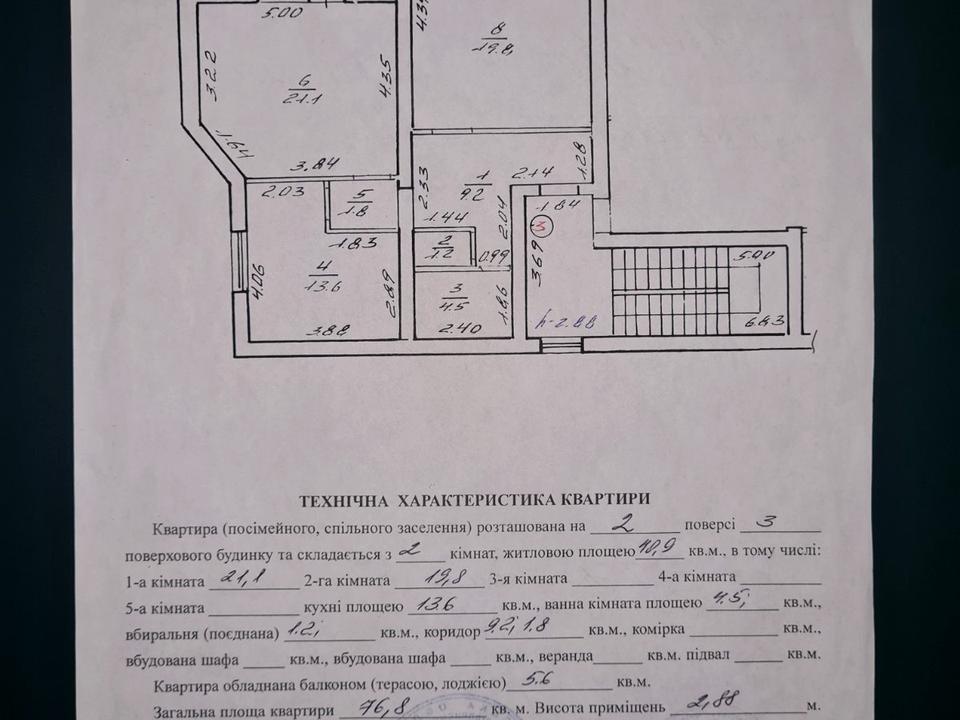 5.00
4.39
8
19.8
3.22
6
21.1
4.35
1.64
3.84
2.03
5
1.8
2.33
1
9.2
2.14
1.28
1.44
2.04
1.84
3
1.83
2
1.2
0.99
3.69
5.00
4.06
4
13.6
2.89
3
4.5
1.86
3.88
2.40
h-2.88
6.83
ТЕХНІЧНА ХАРАКТЕРИСТИКА КВАРТИРИ
Квартира (посімейного, спільного заселення) розташована на 2 поверсі 3
поверхового будинку та складається з 2 кімнат, житловою площею 40,9 кв.м., в тому числі:
1-а кімната 21,1 2-га кімната 19,8 3-я кімната 4-а кімната
5-а кімната кухні площею 13.6 кв.м., ванна кімната площею 4.5; кв.м.,
вбиральня (поєднана) 1.2; кв.м., коридор 9.2; 1.8 кв.м., комірка кв.м.,
вбудована шафа кв.м., вбудована шафа кв.м., веранда кв.м. підвал кв.м.
Квартира обладнана балконом (терасою, лоджією) 5.6 кв.м.
Загальна площа квартири 76,8 кв. м. Висота приміщень 2,88 м.